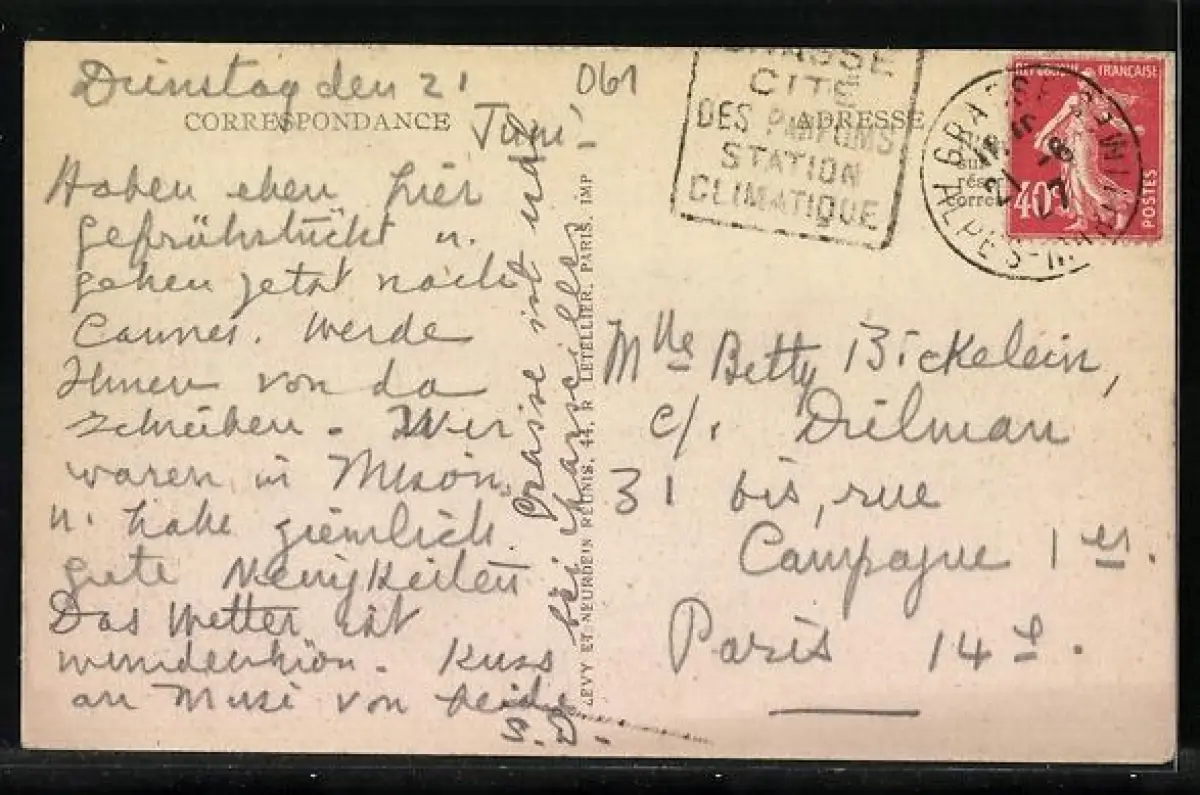 Dienstag den 21
Juni
061
CORRESPONDANCE
Haben eben hier
gefrühstückt u.
gehen jetzt nach
Cannes. Werde
Ihnen von da
schreiben. Wir
waren in
u. habe ziemlich
gute Neuigkeiten
Das Wetter ist
wunderschön. Kuss
an Musi von beide
Grasse ist nahe
bei Marseilles
LEVY ET NEURDEIN REUNIS, 44, R LETELLIER, PARIS, IMP
GRASSE
CITÉ
DES PARFUMS
STATION
CLIMATIQUE
ADRESSE
GRASSE
ALPES-MARITIMES
REPUBLIQUE FRANÇAISE
40c
POSTES
Mlle Betty Bickelein,
c/. Drilman
31 bis, rue
Campagne 1er.
Paris 14e.